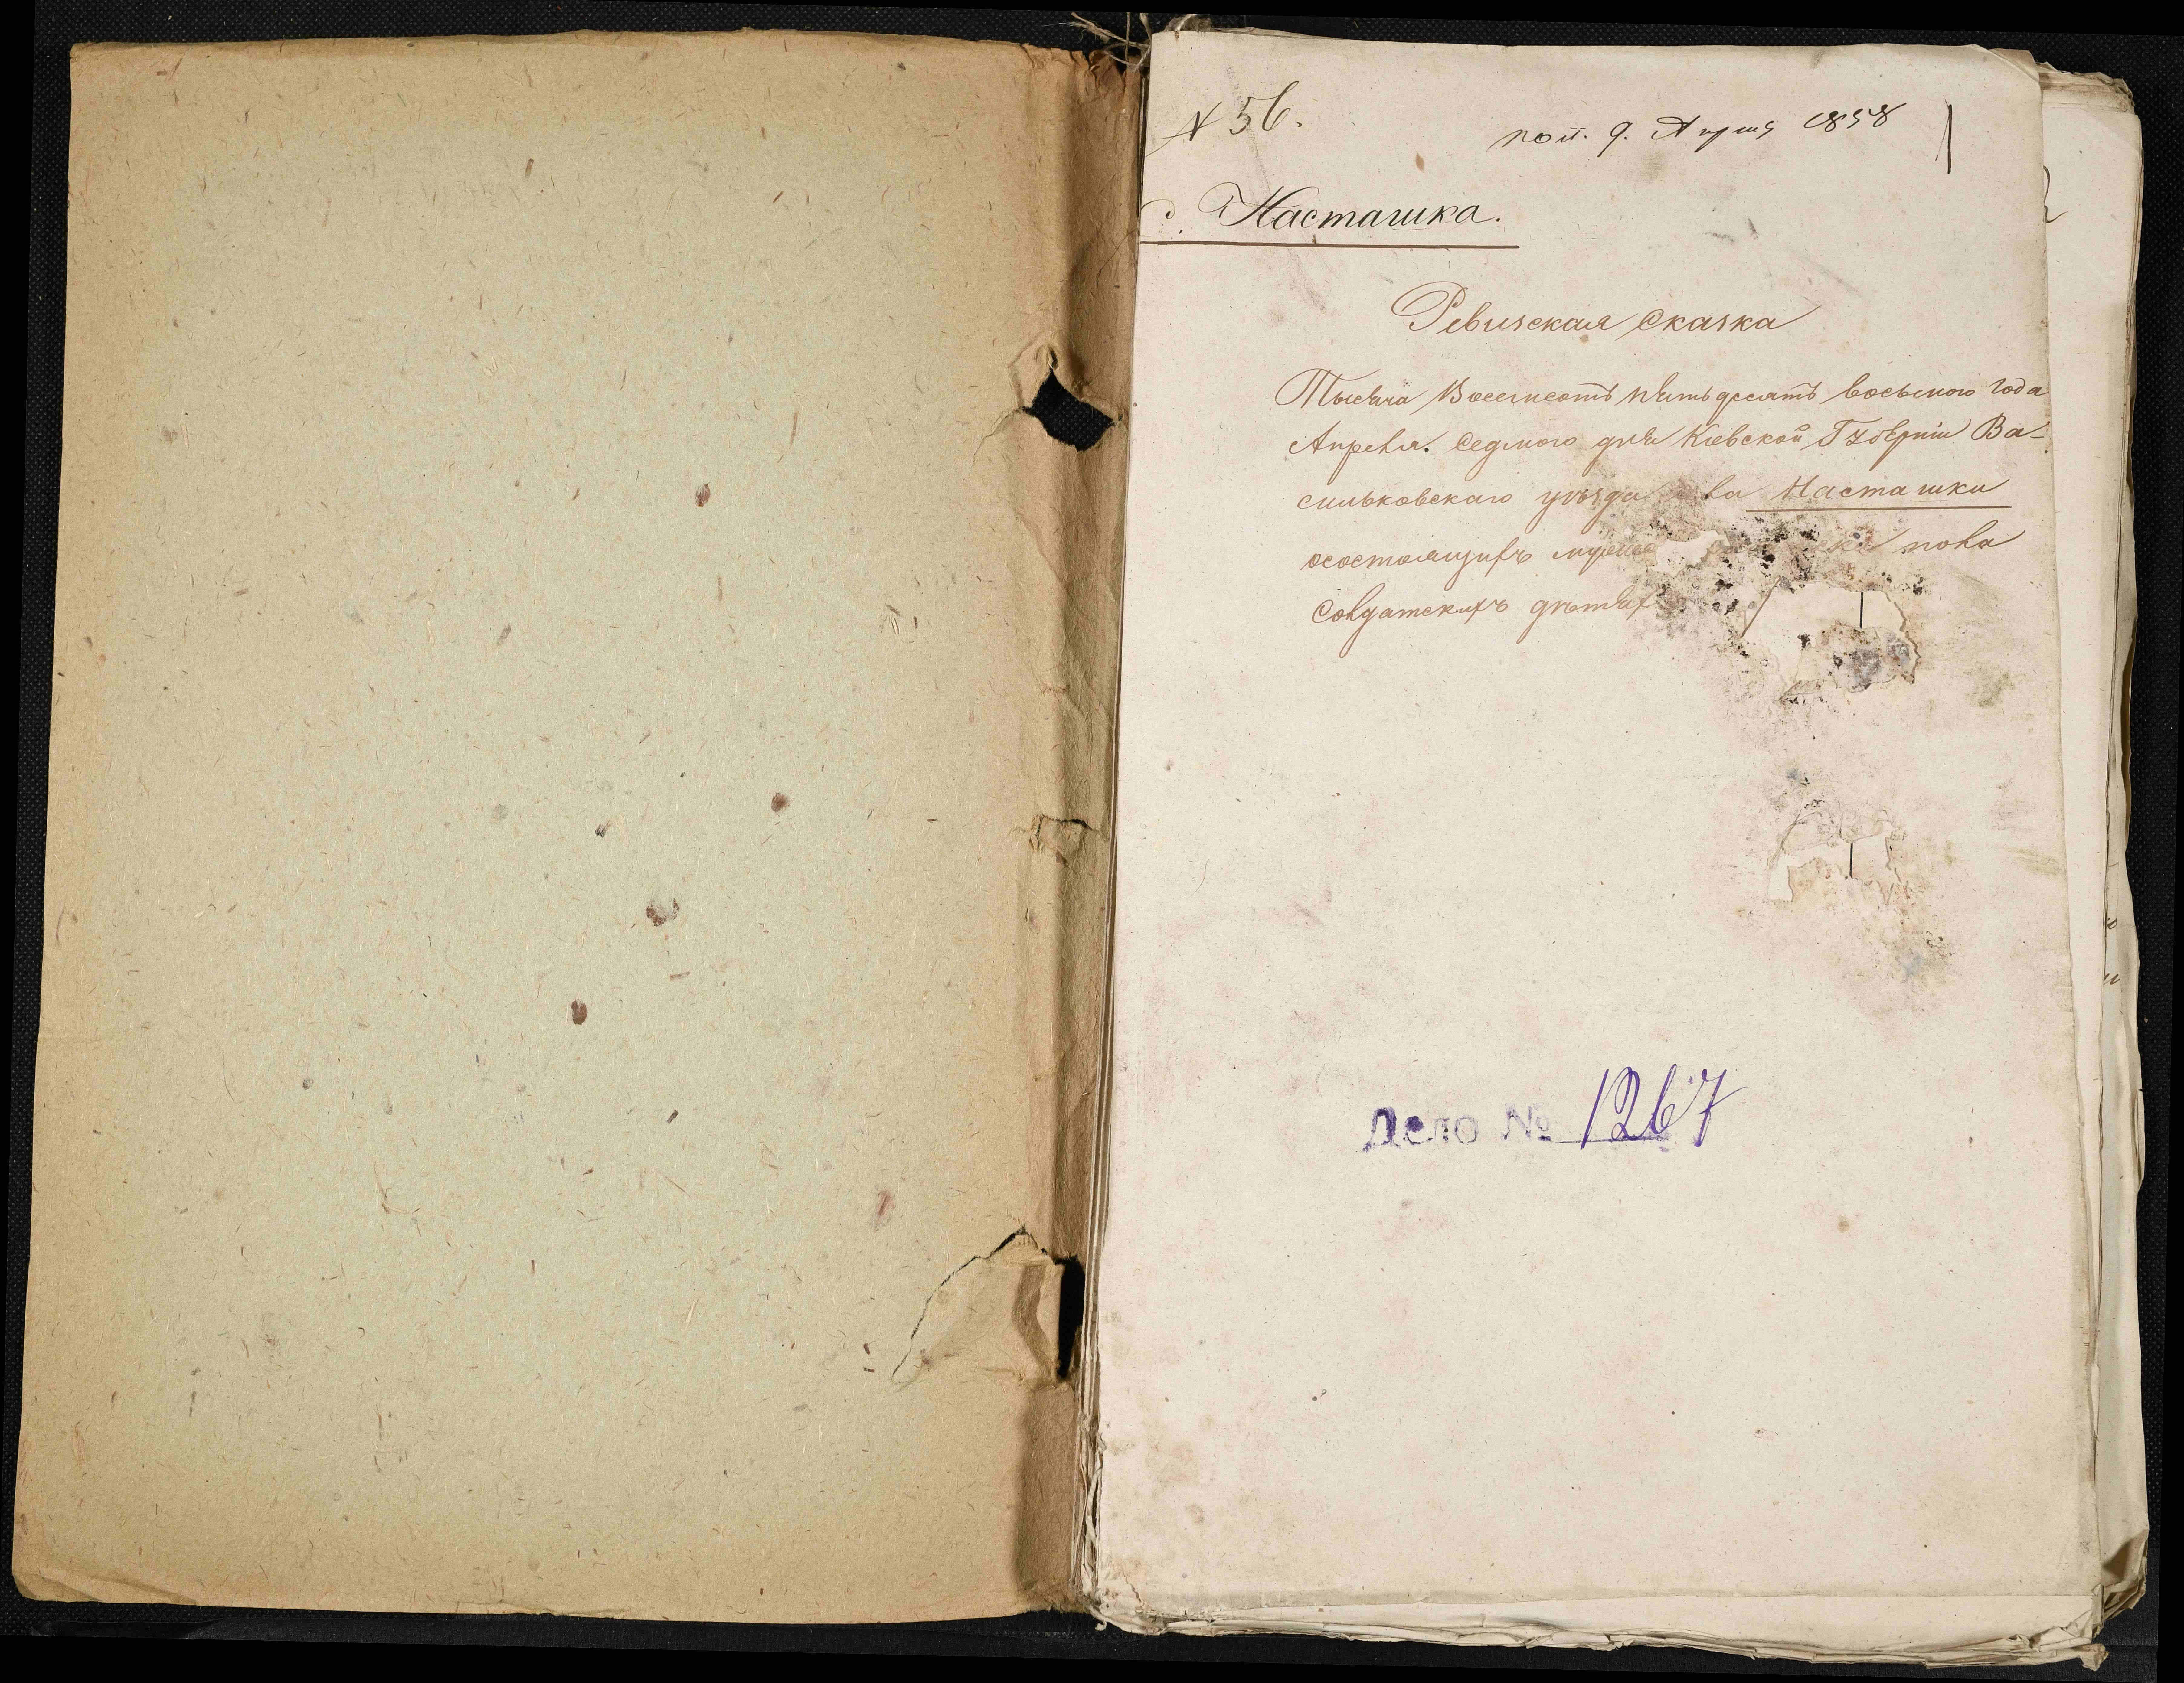 № 56.
пол. 9. Апреля 1858
1
с. Насташка.
Ревизская Сказка
Тысяча Восемсотъ пятьдесятъ восьмого года
Апреля. Седмого дня Кіевской Губерніи Ва-
сильковскаго уѣзда ла Насташки
осостоящихъ мужеска пола
Солдатскихъ дѣтях
Дело № 1267